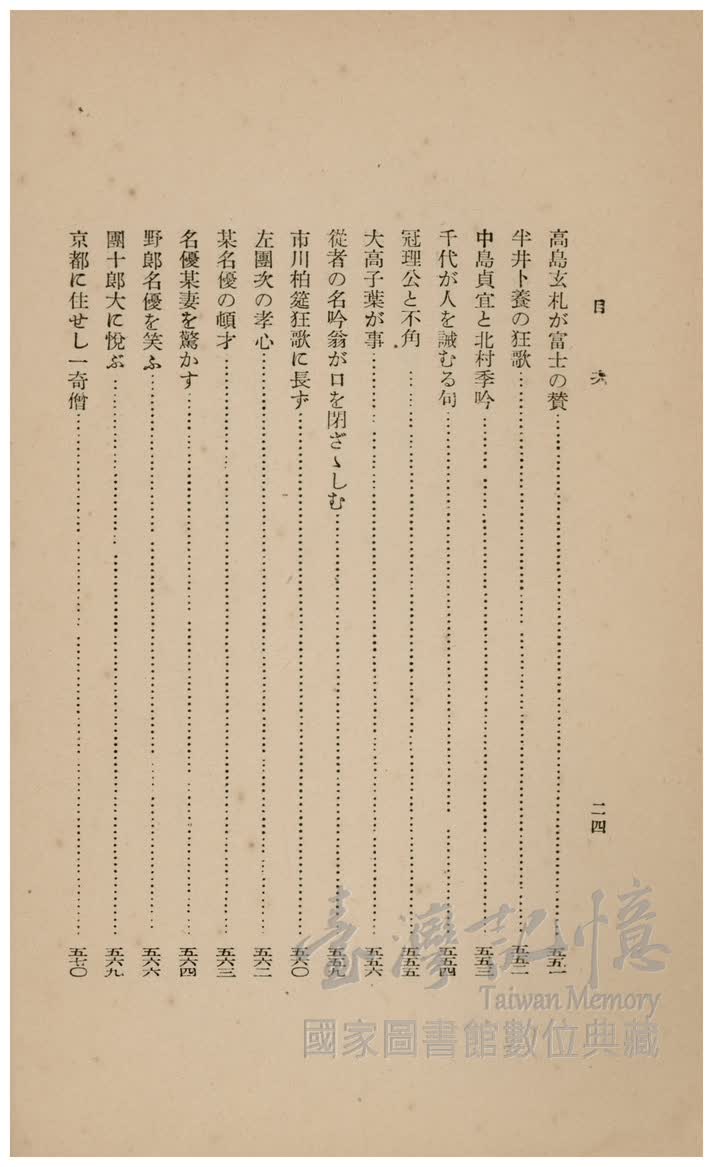 目次
二四
高島玄札が富士の賛……五五一
半井卜養の狂歌……五五二
中島貞宜と北村季吟……五五三
千代が人を誡むる句……五五四
冠理公と不角……五五五
大高子葉が事……五五六
從者の名吟翁が口を閉ざゝしむ……五五九
市川柏筵狂歌に長ず……五六〇
左團次の孝心……五六二
某名優の頓才……五六三
名優某妻を驚かす……五六四
野郎名優を笑ふ……五六六
團十郎大に悅ぶ……五六九
京都に住せし一奇僧……五七〇
臺灣記憶
Taiwan Memory
國家圖書館數位典藏